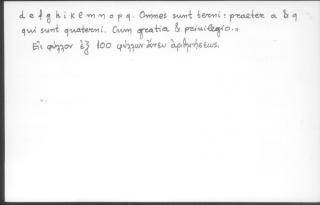 d e f g h i k l m n o p q. Omnes sunt terni: praeter a & q
qui sunt quaterni. Cum gratia & priuilegio."
Εἰς φύλλον ἐξ 100 φύλλων ἄνευ ἀριθμήσεως.